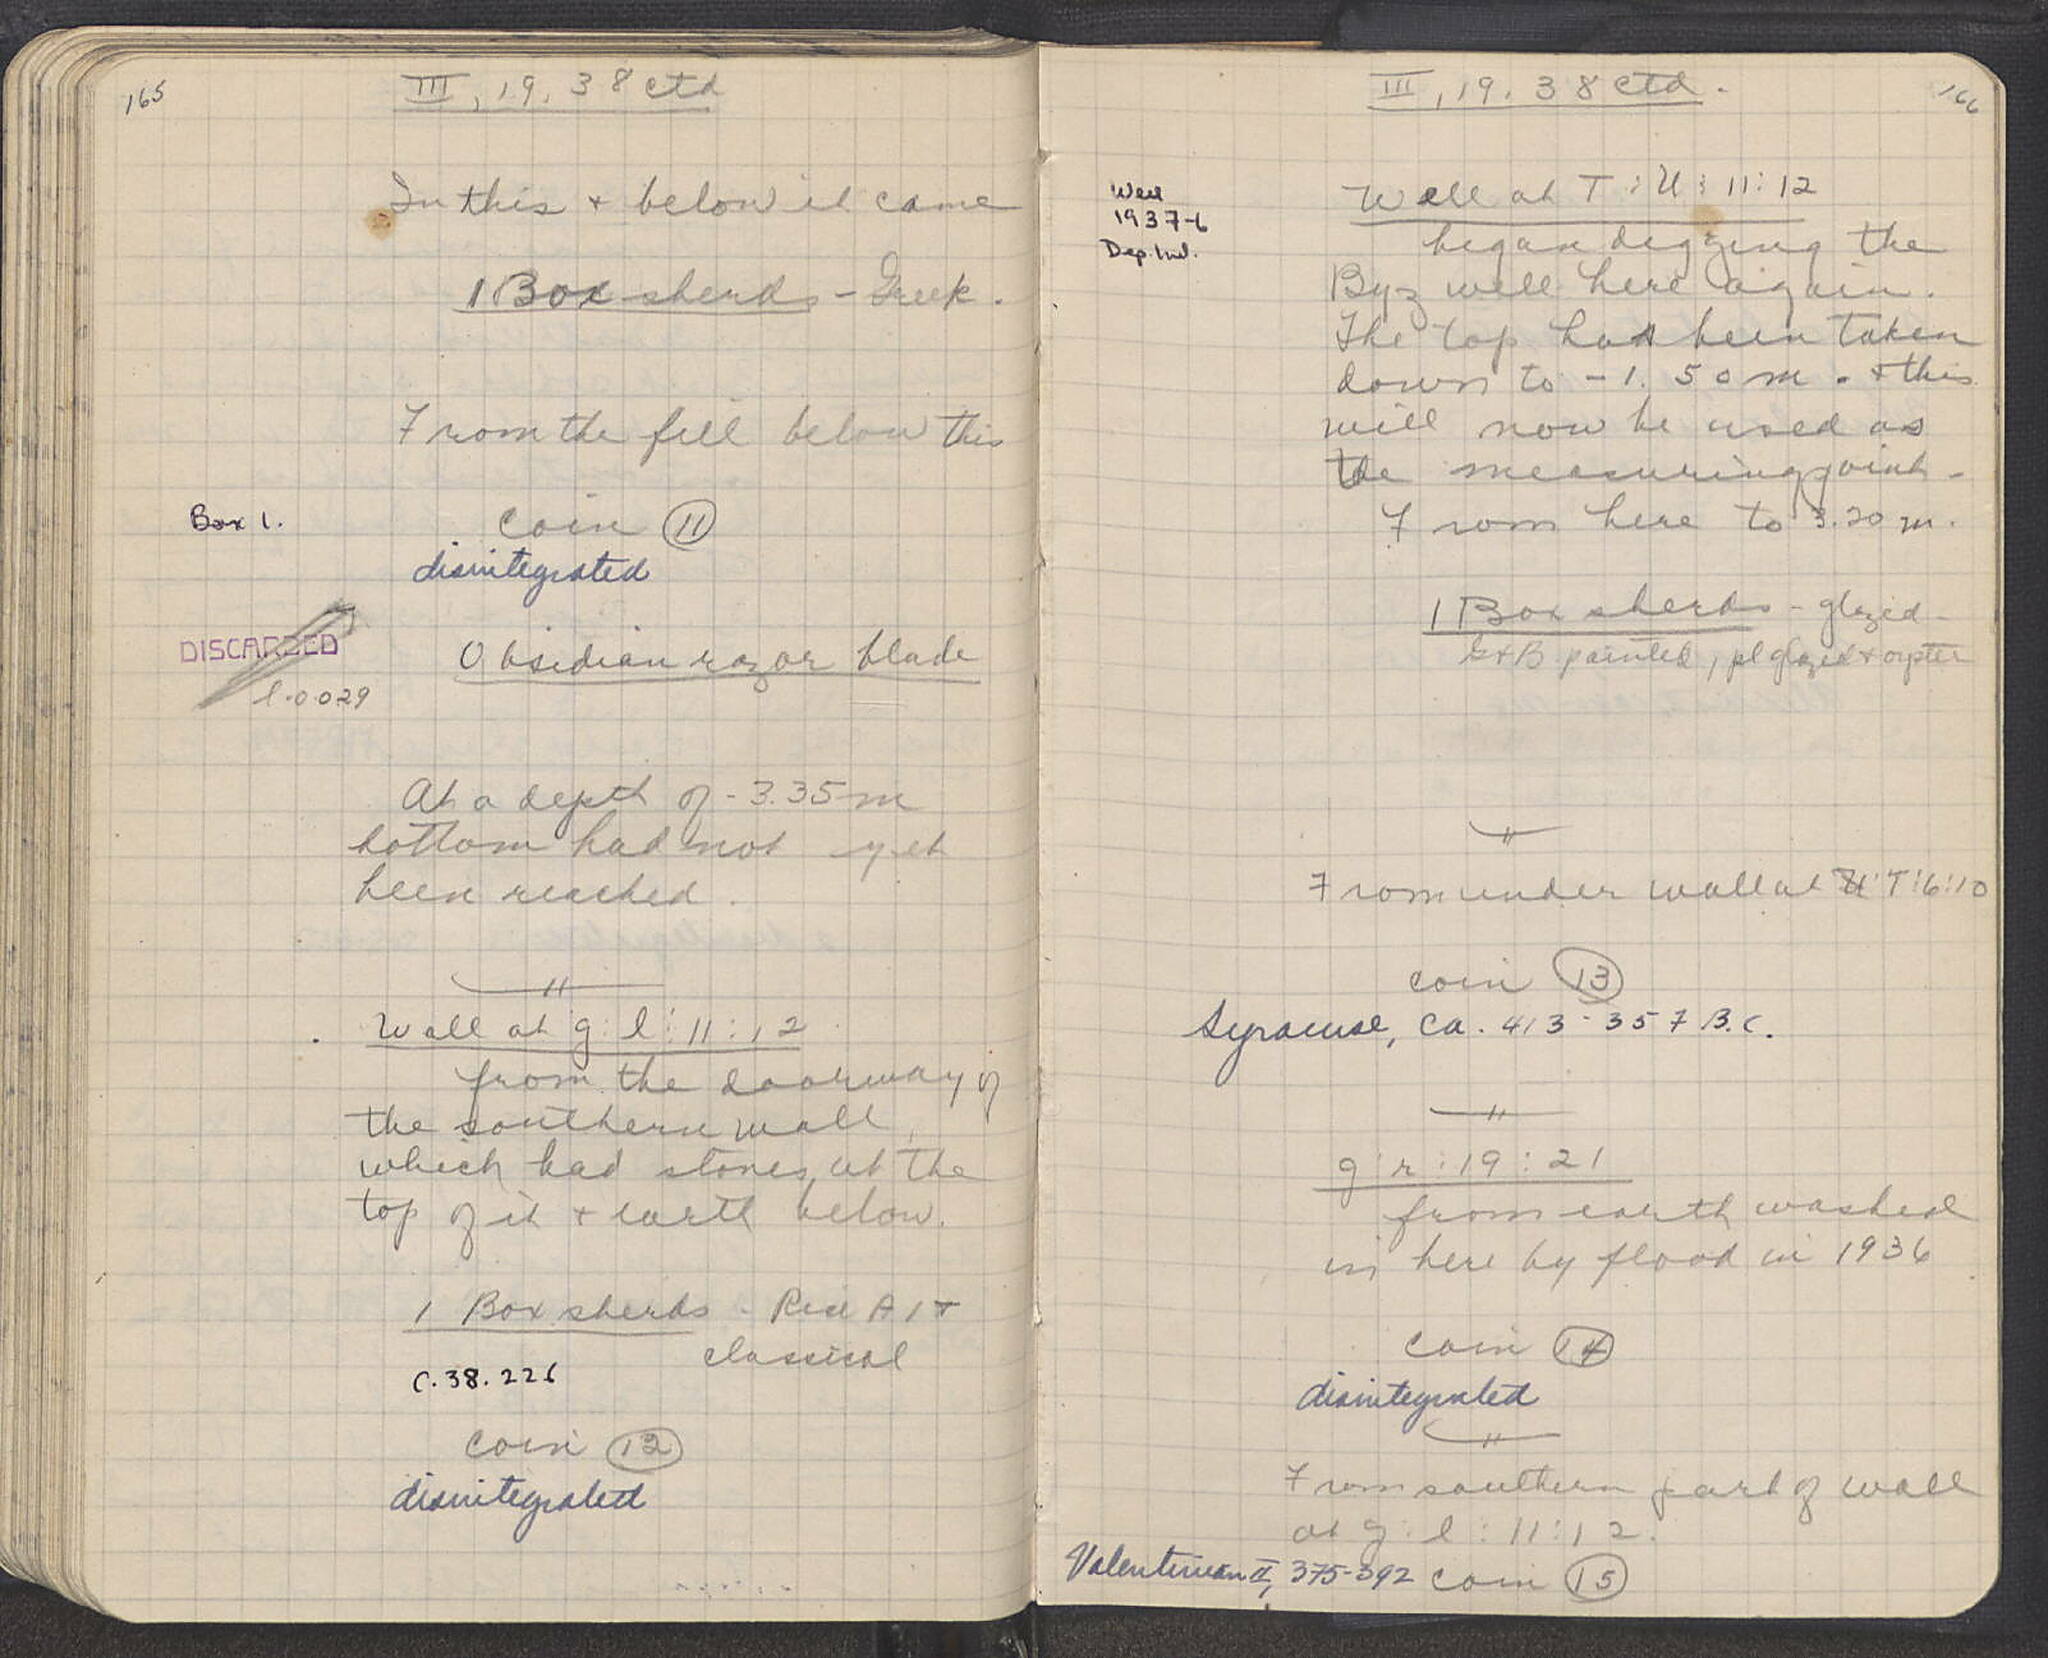 165
III, 19. 38 ctd
In this + below it came
1 Box sherds - Greek.
From the fill below this
Box 1.
coin 11
disintegrated
DISCARDED
Obsidian razor blade
l-0.029
At a depth of - 3.35 m
bottom had not yet
been reached.
Wall at g : l : 11 : 12
from the doorway of
the southern wall,
which had stones at the
top of it + earth below.
1 Box sherds -
classical
C. 38. 226
coin 12
disintegrated
III, 19. 38 ctd.
166
Well
1937-6
Dep. Ind.
Well at T : U : 11 : 12
began digging the
Byz well here again.
The top had been taken
down to - 1. 50 m. + this
will now be used as
the measuring point -
From here to 3.20 m.
1 Box sherds - glazed -
G+B painted, pl glazed +
From under wall at T : 6 : 10
coin 13
Syracuse, ca. 413 - 357 B.C.
g : r : 19 : 21
from earth washed
in here by flood in 1936
coin 14
disintegrated
From southern part of wall
at g : l : 11 : 12.
Valentinian II, 375-392 coin 15